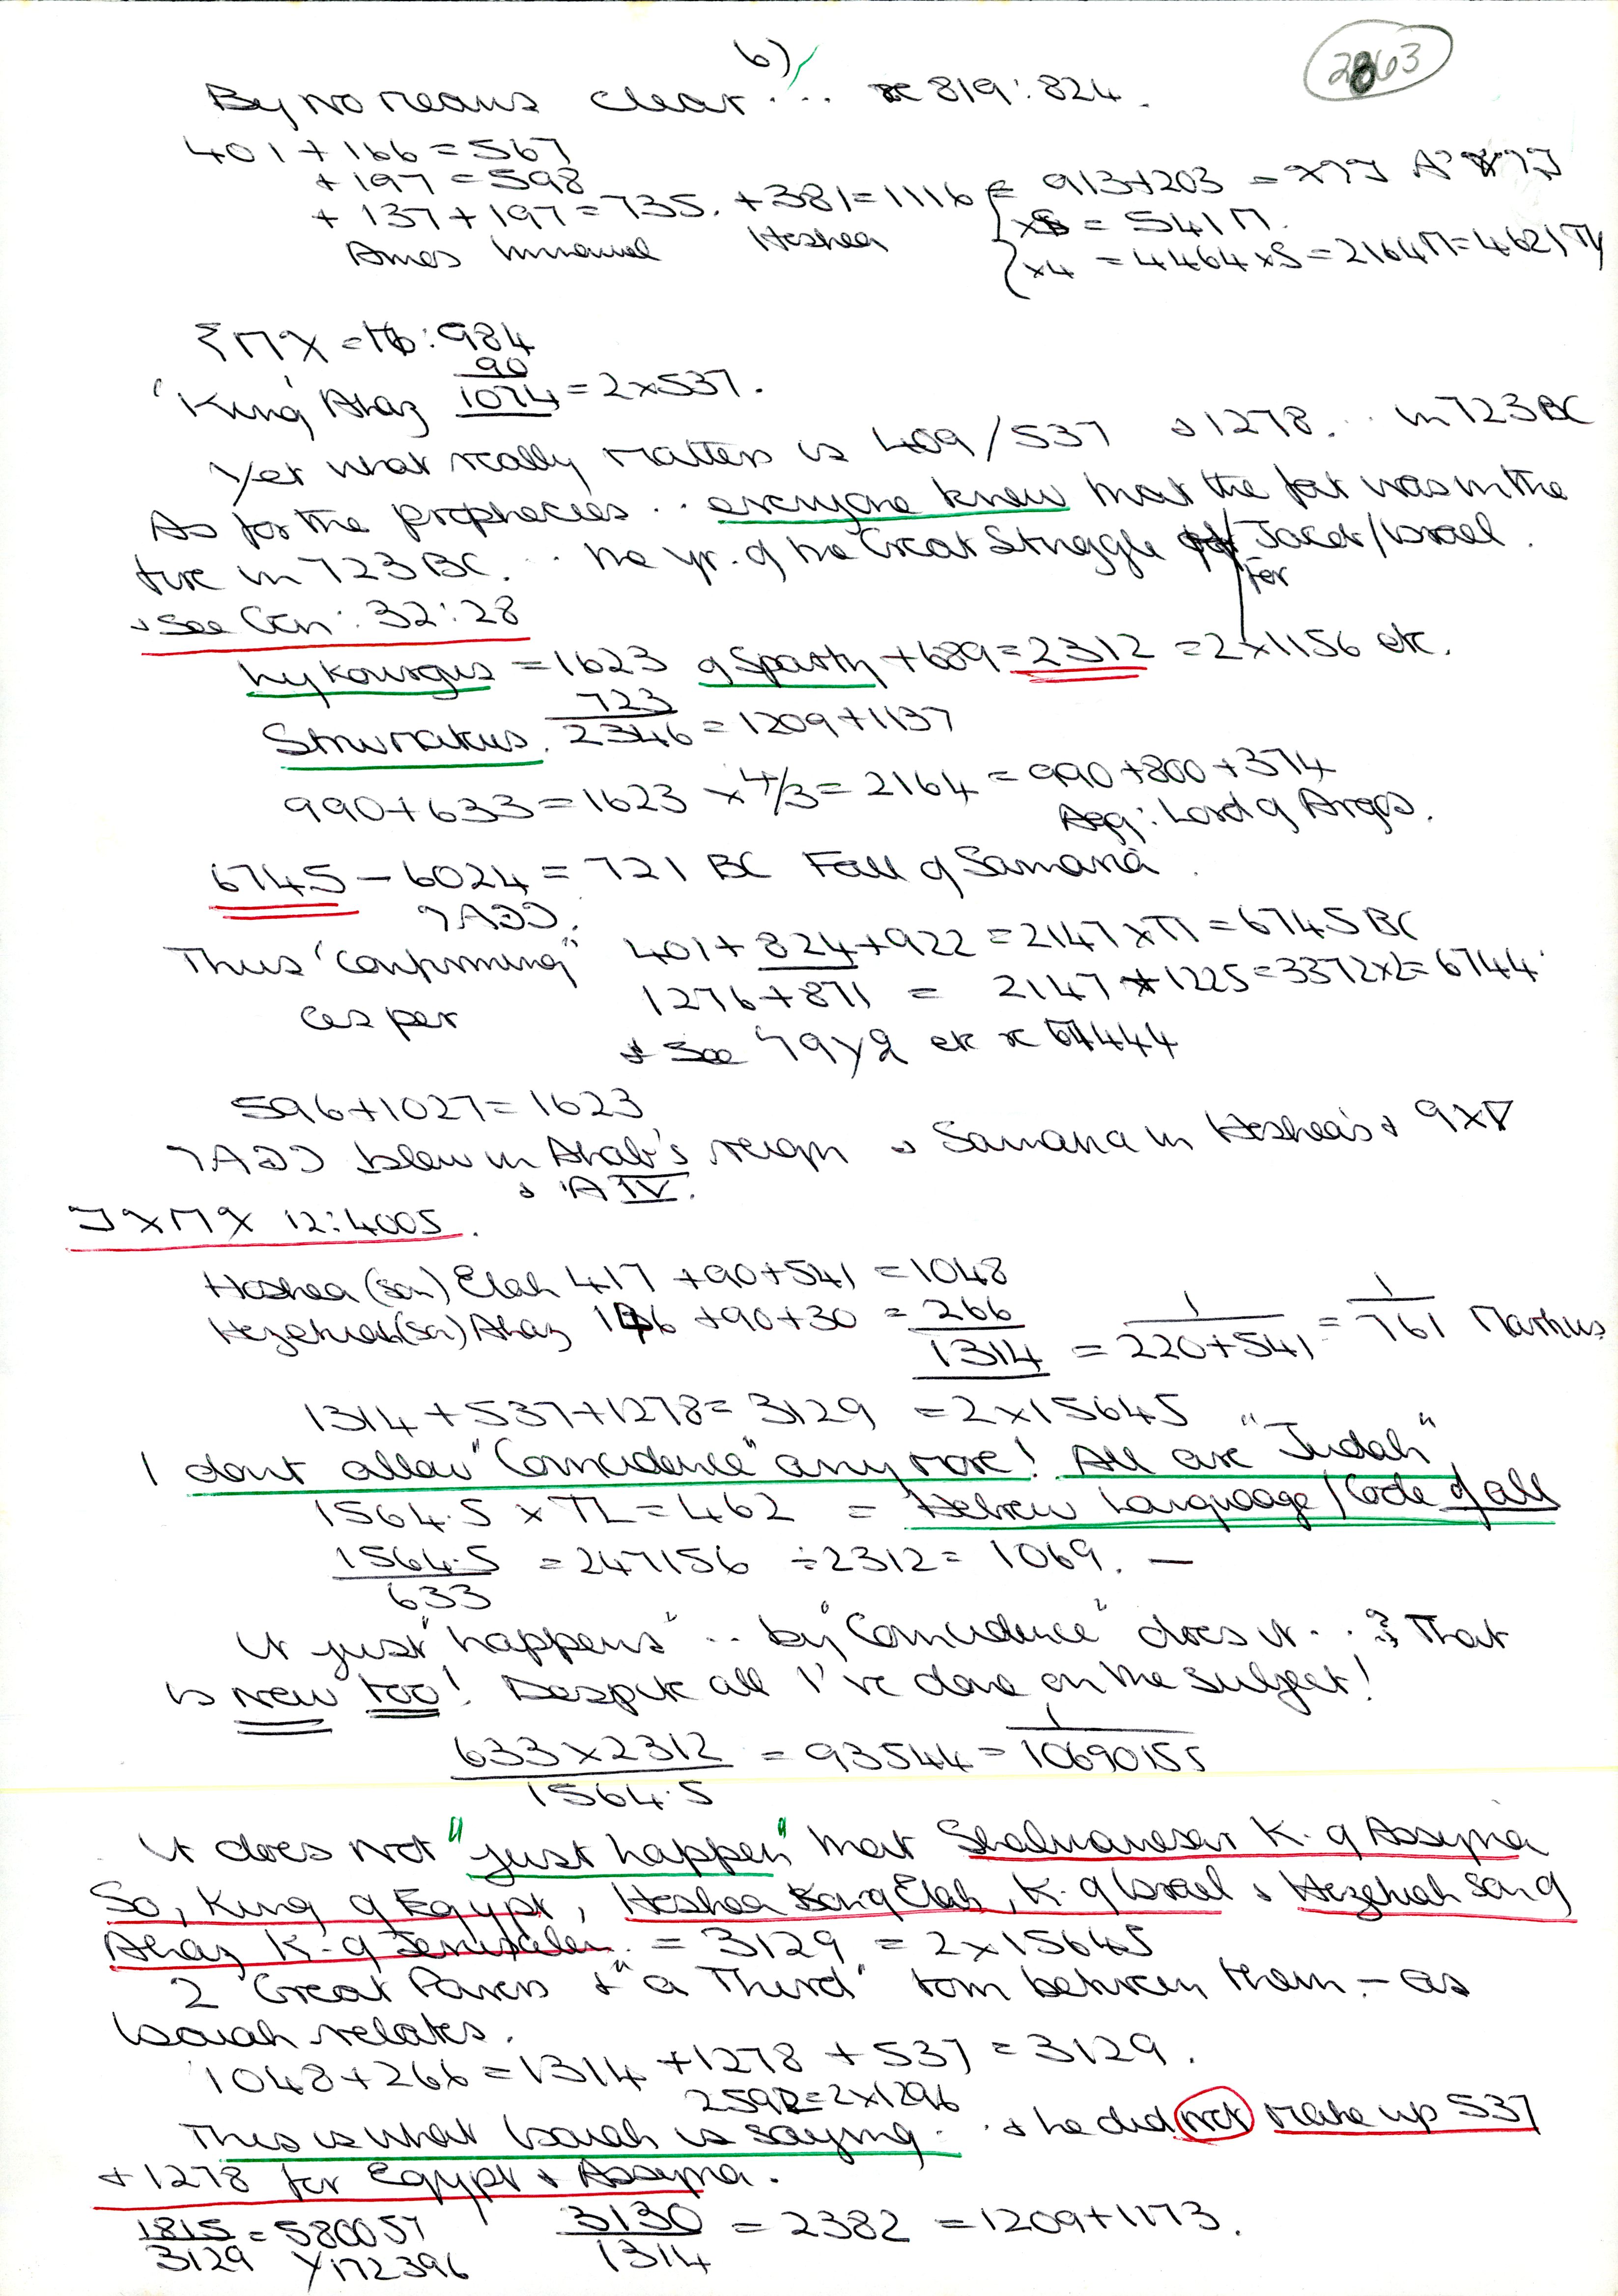 6)
2863
By no means clear ... x 819:824.
401 + 166 = 567
+ 197 = 598
+ 137 + 197 = 735. + 381 = 1116 = 913+203
Amos Immanuel Hoshea
x5 = 541Π.
x4 = 4464 x 5 = 2164Π = 4621
: 984
90
'King' Ahaz 1074 = 2x537.
Yet what really matters is 409/537 & 1278 ... in 723 BC
As for the prophecies .. everyone knew that the fat was in the
fire in 723 BC. .. the yr. of the Great Struggle for Jacob/Israel.
& See Gen: 32:28
Lykourgus = 1623 of Sparta + 689 = 2312 = 2x1156 etc.
723
2346 = 1209+1137
990+633 = 1623 x 4/3 = 2164 = 990+800+374
Agg: Lord of Argos.
6745 - 6024 = 721 BC Fall of Samaria.
Thus "Confirming" 401 + 824 + 922 = 2147 x Π = 6745 BC
1276 + 871 = 2147 + 1225 = 3372x2 = 6744
as per
& See etc
596+1027 = 1623
blew in Ahab's reign & Samaria in Hoshea's &
& IV.
12:4005.
Hoshea (son) Elah 417 + 90 + 541 = 1048
Hezekiah (son) Ahaz 146 + 90 + 30 = 266
1314 = 1/220+541 = 1/761 Markus
1314 + 537 + 1278 = 3129 = 2 x 1564.5
I don't allow "Coincidence" any more! All are "Judah"
1564.5 x TL = 462 = Hebrew Language/Code of all
1564.5/633 = 247156 ÷ 2312 = 1069. —
It just "happens" .. by "Coincidence" does it ... ? That
is new too! Despite all I've done on the subject!
633 x 2312/1564.5 = 93544 = 1/10690155
It does not "just happen" that Shalmaneser K. of Assyria
So, King of Egypt, Hoshea Son of Elah, K. of Israel & Hezekiah Son of
Ahaz K. of Jerusalem = 3129 = 2 x 1564.5
2 "Great Powers & "a Third" torn between them - as
Isaiah relates.
1048 + 266 = 1314 + 1278 + 537 = 3129.
2592 = 2x1296
This is what Isaiah is saying .. & he did not make up 537
+ 1278 for Egypt & Assyria.
1815/3129 = 580057
3130/1314 = 2382 = 1209 + 1173.
172396